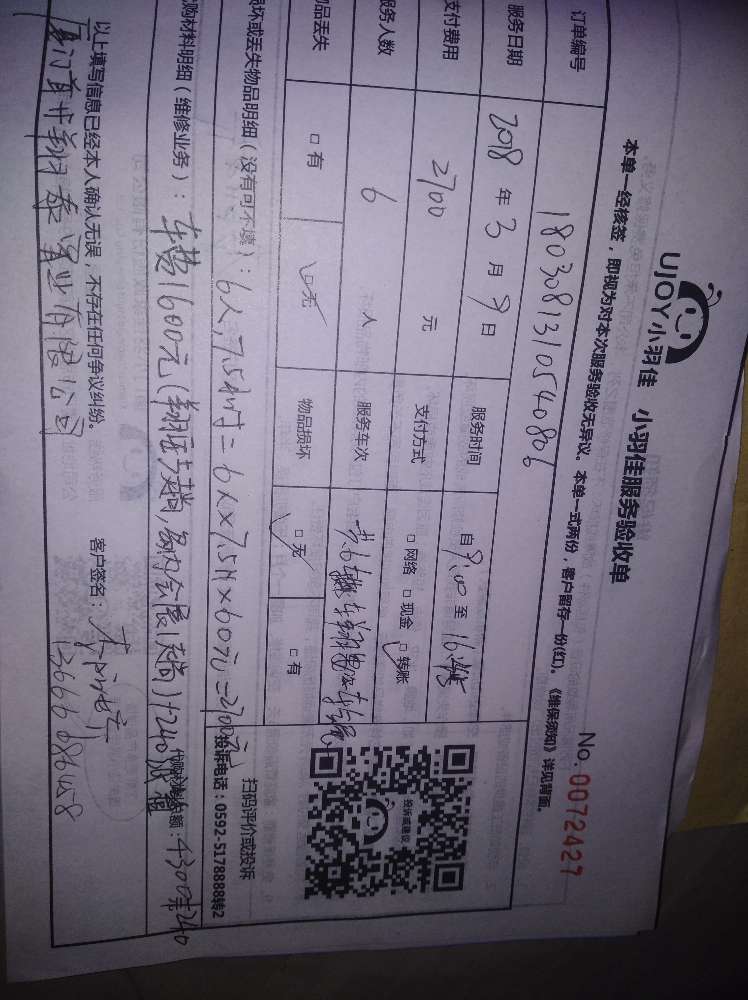 UJOY小羽佳 小羽佳服务验收单
No. 0072427
本单一经核签，即视为对本次服务验收无异议。本单一式两份，客户留存一份(红)。《维保须知》详见背面。
订单编号 1803081310540806
服务日期 2018 年 3 月 9 日 服务时间 自 9:00 至 16:45
支付费用 2700 元 支付方式 □ 网络 □ 现金 □ 转账
服务人数 6 人 服务车次 共6辆车
物品丢失 □ 有 □ 无 物品损坏 □ 无 □ 有
投诉或建议
扫码评价或投诉
投诉电话：0592-5178888转2
损坏或丢失物品明细（没有可不填）：6人，7.5小时=6人×7.5H×60元=2700元
购材料明细（维修业务）：车费1600元（翔安5趟，岛内会展1趟）+240
4300+240
以上填写信息已经本人确认无误，不存在任何争议纠纷。 客户签名：
厦门首开翔泰置业有限公司 13666086458